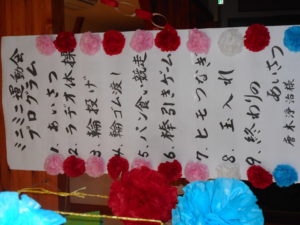 ミニミニ運動会
プログラム
1. あいさつ
2. ラジオ体操
3. 輪投げ
4. 輪ゴム渡し
5. パン食い競走
6. 棒引きゲーム
7. ヒモつなぎ
8. 玉入れ
9. 終わりの
あいさつ